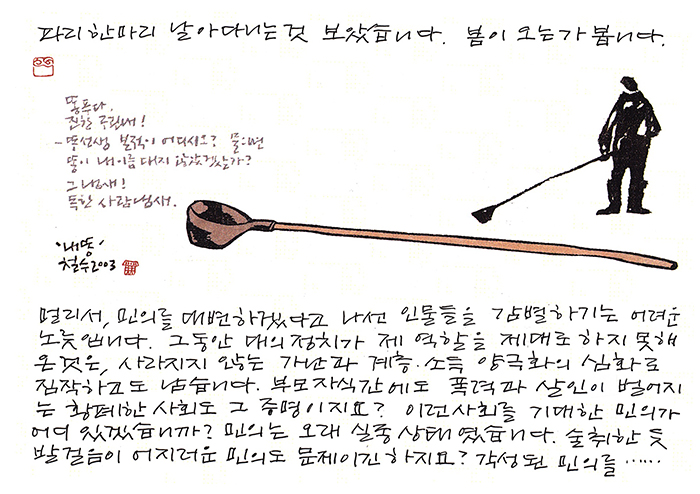 파리 한마리 날아다니는 것 보았습니다. 봄이 오는가 봅니다.
똥푸다.
진한 구린내!
-똥선생 본적이 어디시오? 물으면
똥이 내이름 대지 않았겠는가?
그 냄새!
독한 사람냄새.
'내똥'
철수2003
멀리서, 민의를 대변하겠다고 나선 인물들을 감별하기는 어려운
노릇입니다. 그동안 대의정치가 제 역할을 제대로 하지 못해
온것은, 사라지지 않는 가난과 계층·소득 양극화의 심화로
짐작하고도 남습니다. 부모자식간에도 폭력과 살인이 벌어지
는 황폐한 사회도 그 증명이지요? 이런사회를 기대한 민의가
어디 있겠습니까? 민의는 오래 실종 상태였습니다. 술취한 듯
발걸음이 어지러운 민의도 문제이긴 하지요? 각성된 민의를 ······